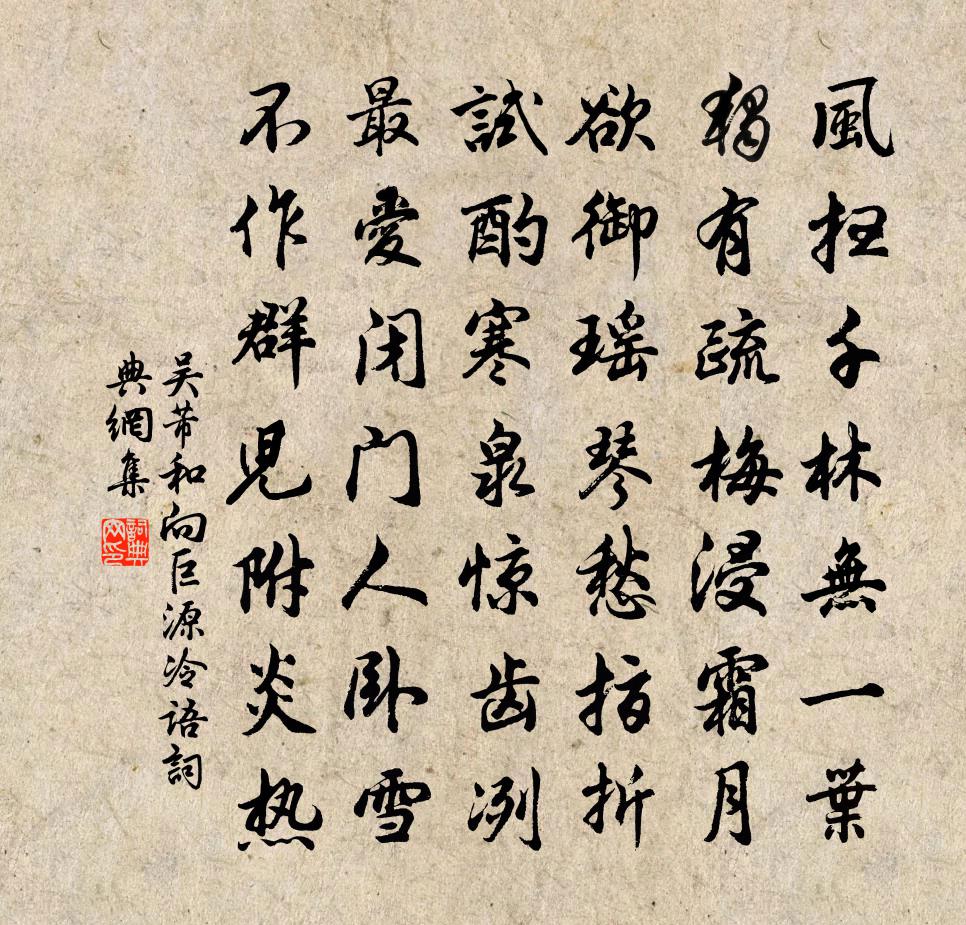 風扫千林無一葉
獨有疏梅浸霜月
欲御瑶琴愁指折
試酌寒泉惊齿冽
最愛闭门人卧雪
不作群児附炎热
吴芾和向巨源冷語詞
典網集
詞典网印